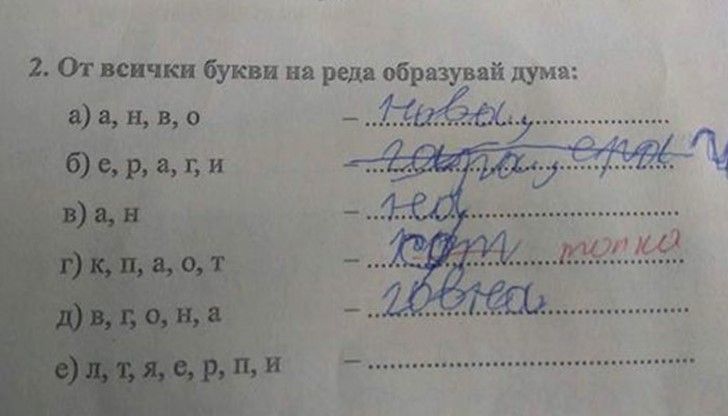 2. От всички букви на реда образувай дума:
а) а, н, в, о – нова,
б) е, р, а, г, и –
в) а, н – на,
г) к, п, а, о, т – топка
д) в, г, о, н, а – говна
е) л, т, я, е, р, п, и –